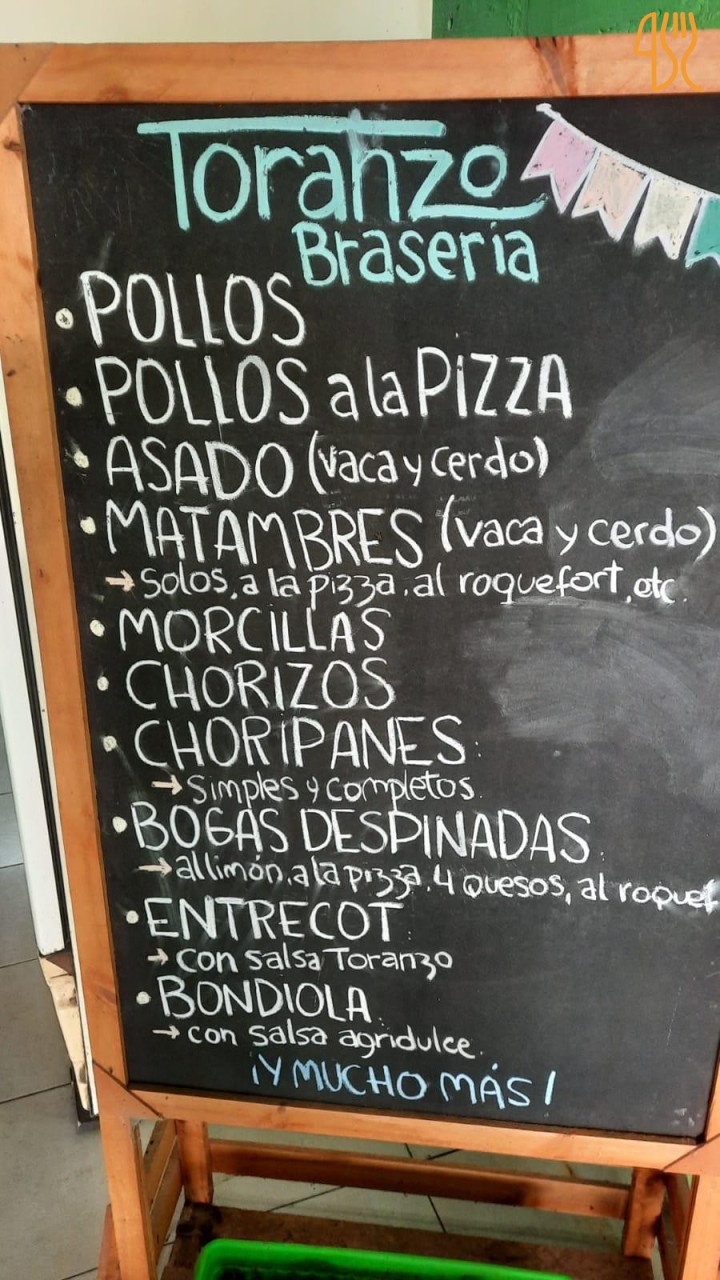 Toranzo
Braseria
• POLLOS
• POLLOS a la PIZZA
• ASADO (vaca y cerdo)
• MATAMBRES (vaca y cerdo)
→ solos, a la pizza, al roquefort, etc.
• MORCILLAS
• CHORIZOS
• CHORIPANES:
→ simples y completos.
• BOGAS DESPINADAS.
→ al limón, a la pizza, 4 quesos, al roquef
• ENTRECOT.
→ con salsa Toranzo
• BONDIOLA.
→ con salsa agridulce.
¡Y MUCHO MÁS!